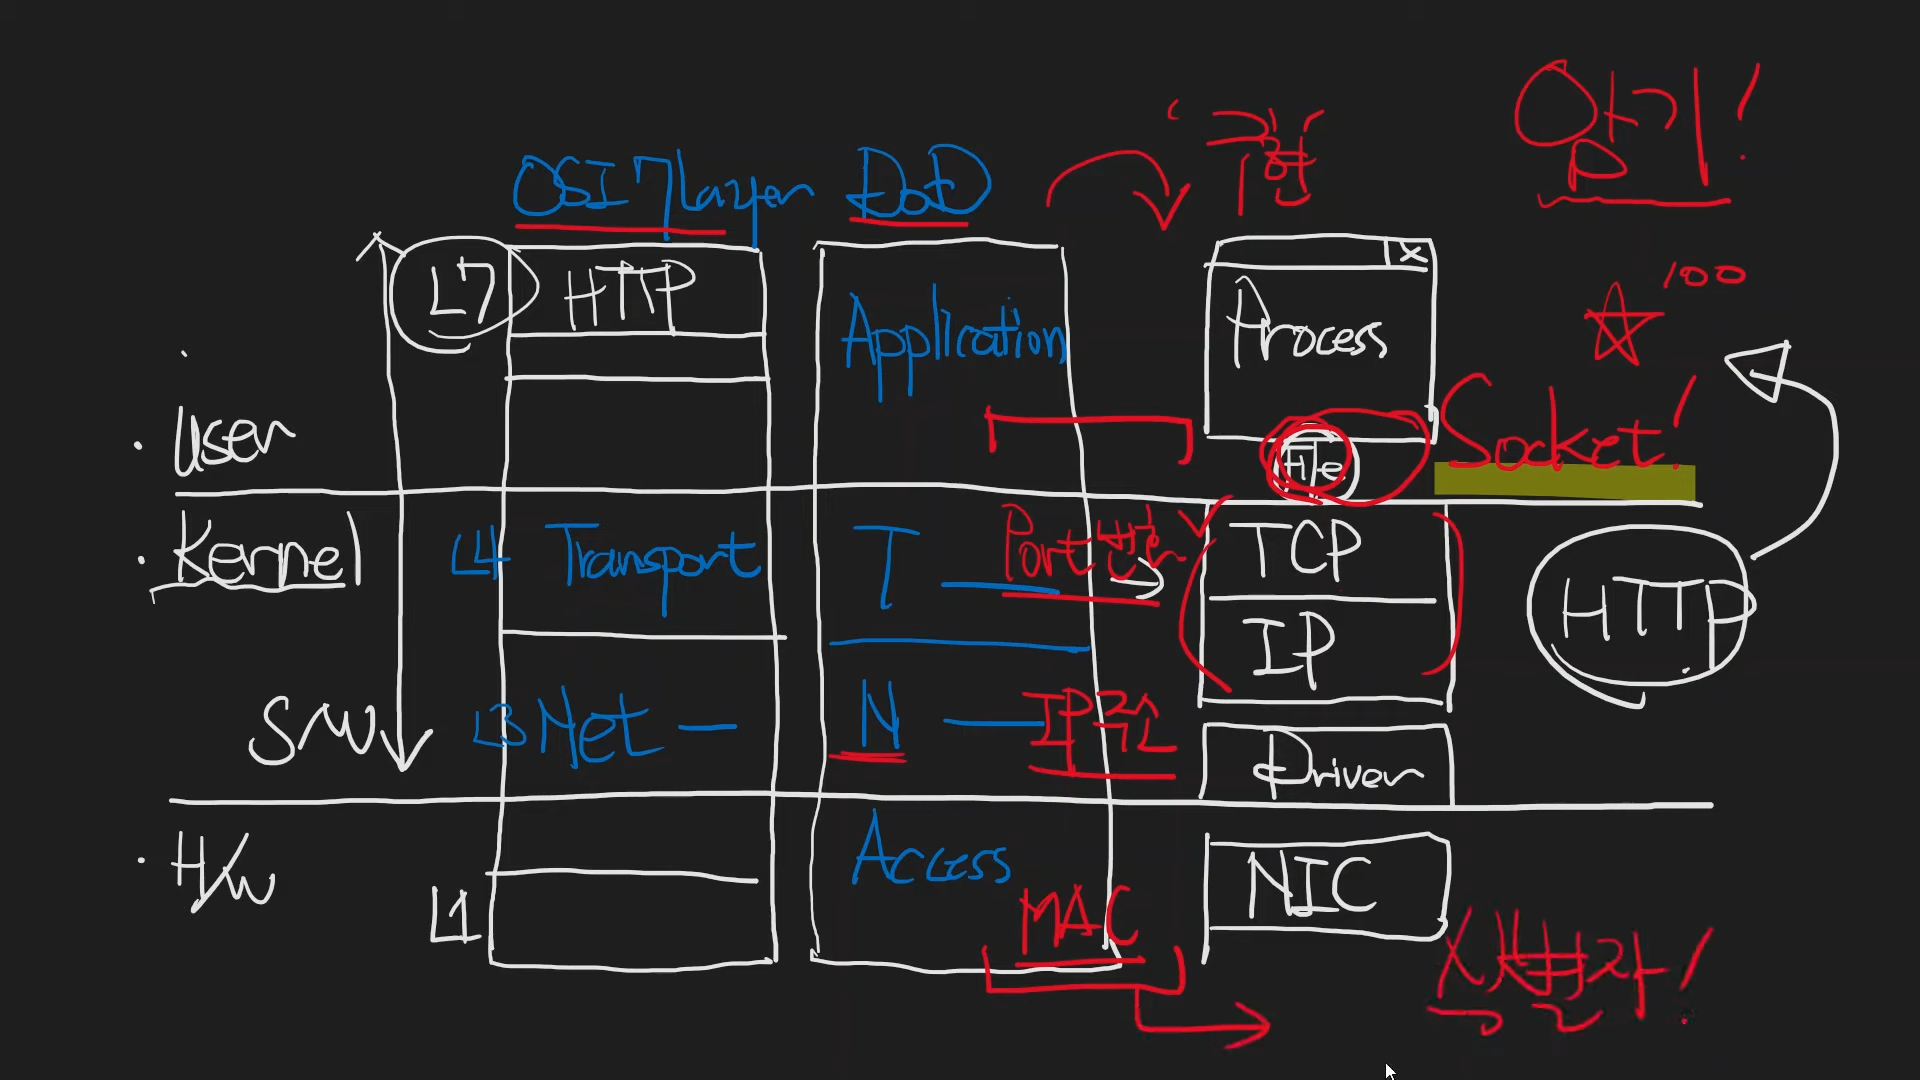 OSI 7 Layer DoD
'구현'
암기!
L7 HTTP
Application
Process
X
100
· User
File
Socket!
· Kernel
L4 Transport
T
Port 번호
TCP
IP
HTTP
S/W
L3 Net
N
IP주소
Driver
· H/W
Access
L1
MAC
NIC